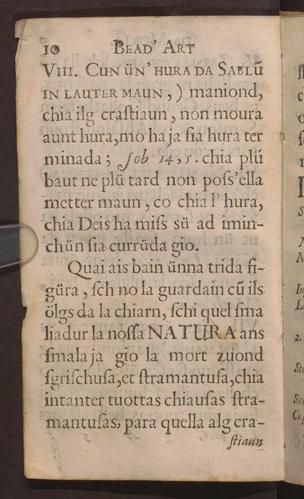 10 BEAD' ART
VIII. CUN ÜN' HURA DA SABLŪ
IN LAUTER MAUN, ) maniond,
chia ilg craſtiaun, non moura
aunt hura, mo ha ja ſia hura ter
minada; Job 14, 5. chia plü
baut ne plü tard non poſſ'ella
metter maun, co chia l' hura,
chia Deis ha miſſ ſü ad imin-
chün ſia currüda gio.
Quai ais bain ünna trida fi-
güra, ſch no la guardain cū ils
ölgs da la chiarn, ſchi quel ſma
liadur la noſſa NATURA ans
ſmala ja gio la mort zuond
ſgriſchuſa, et ſtramantuſa, chia
intanter tuottas chiauſas ſtra-
mantuſas, para quella alg cra-
ſtiaun